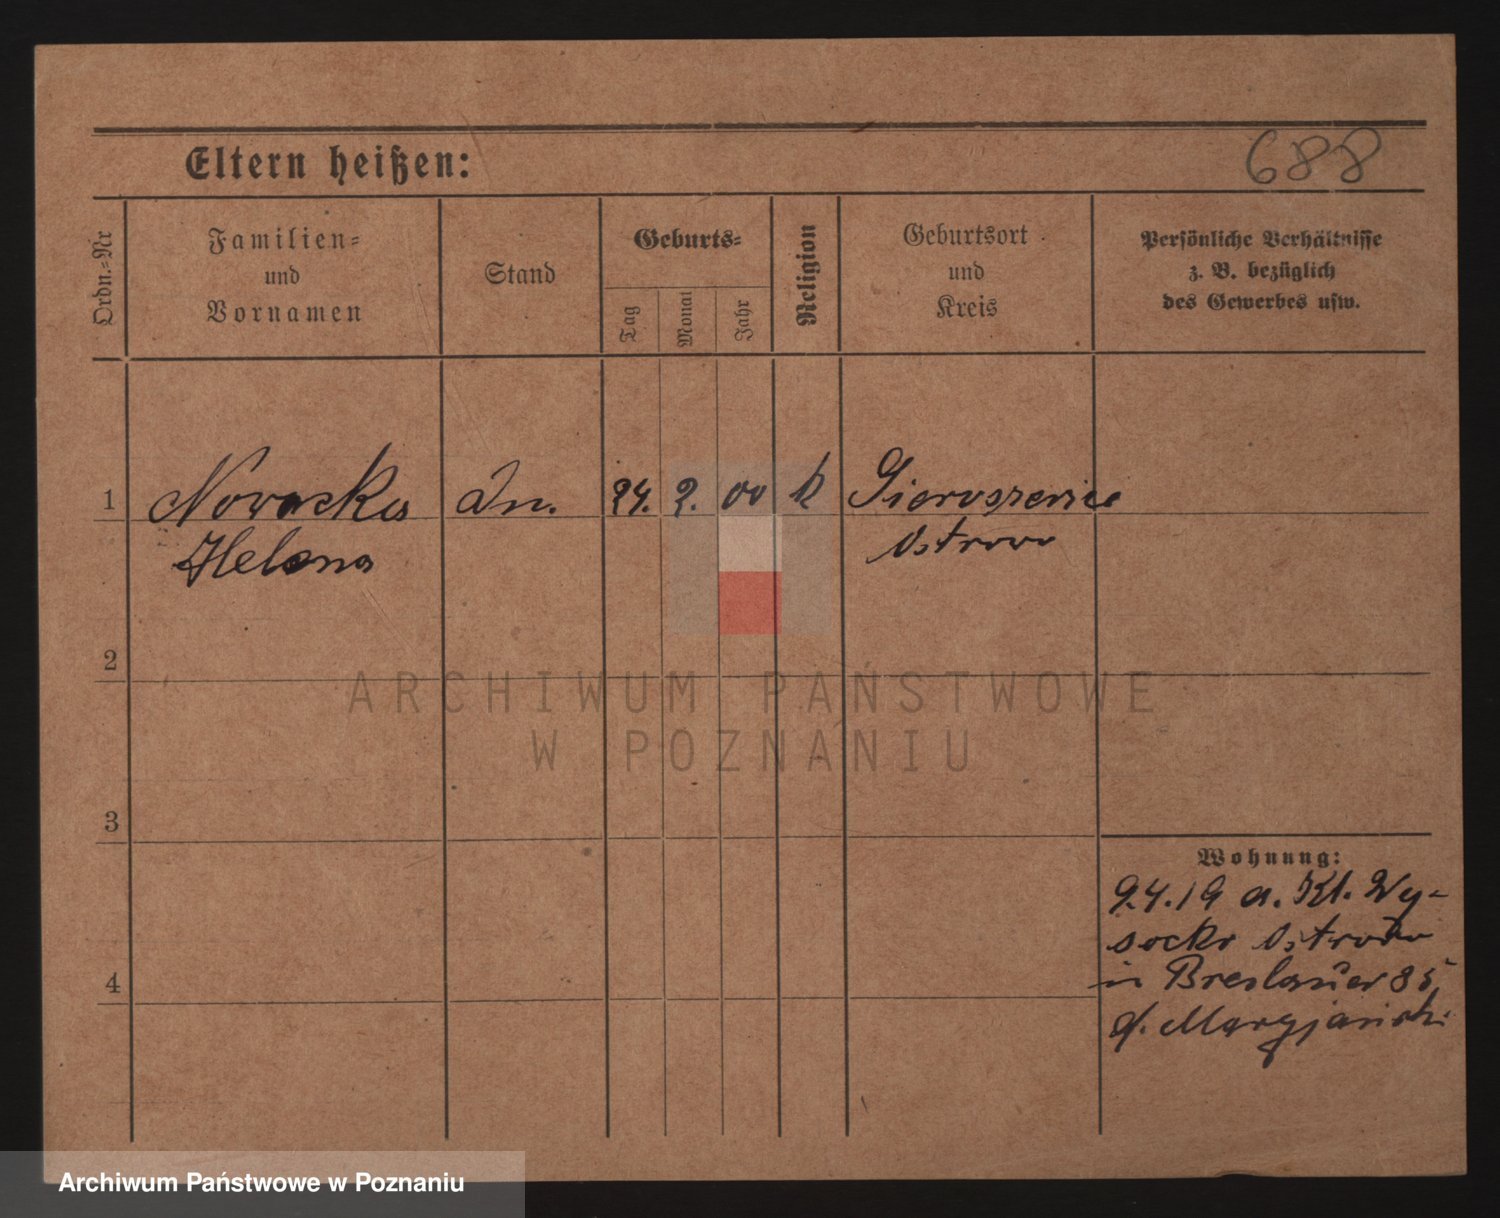 Eltern heißen:
688
Ordn.-Nr
Familien-
und
Vornamen
Stand
Geburts-
Tag
Monat
Jahr
Religion
Geburtsort
und
Kreis
Persönliche Verhältnisse
z. B. bezüglich
des Gewerbes usw.
1
Nowacka
Helena
Dn.
24.
2.
00
k
Sieroszewice
Ostrowo
2
3
4
Wohnung:
9.4.19 a. Kl. Wy-
socko Ostrowo
in Breslauer 85,
ARCHIWUM PAŃSTWOWE
W POZNANIU
Archiwum Państwowe w Poznaniu